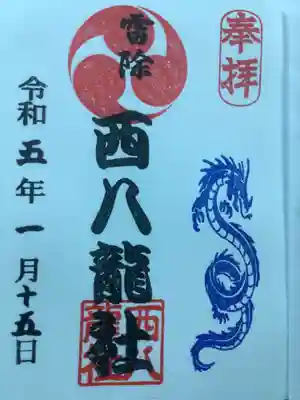 奉拝
雷除
西八龍社
西八龍社
令和五年一月十五日